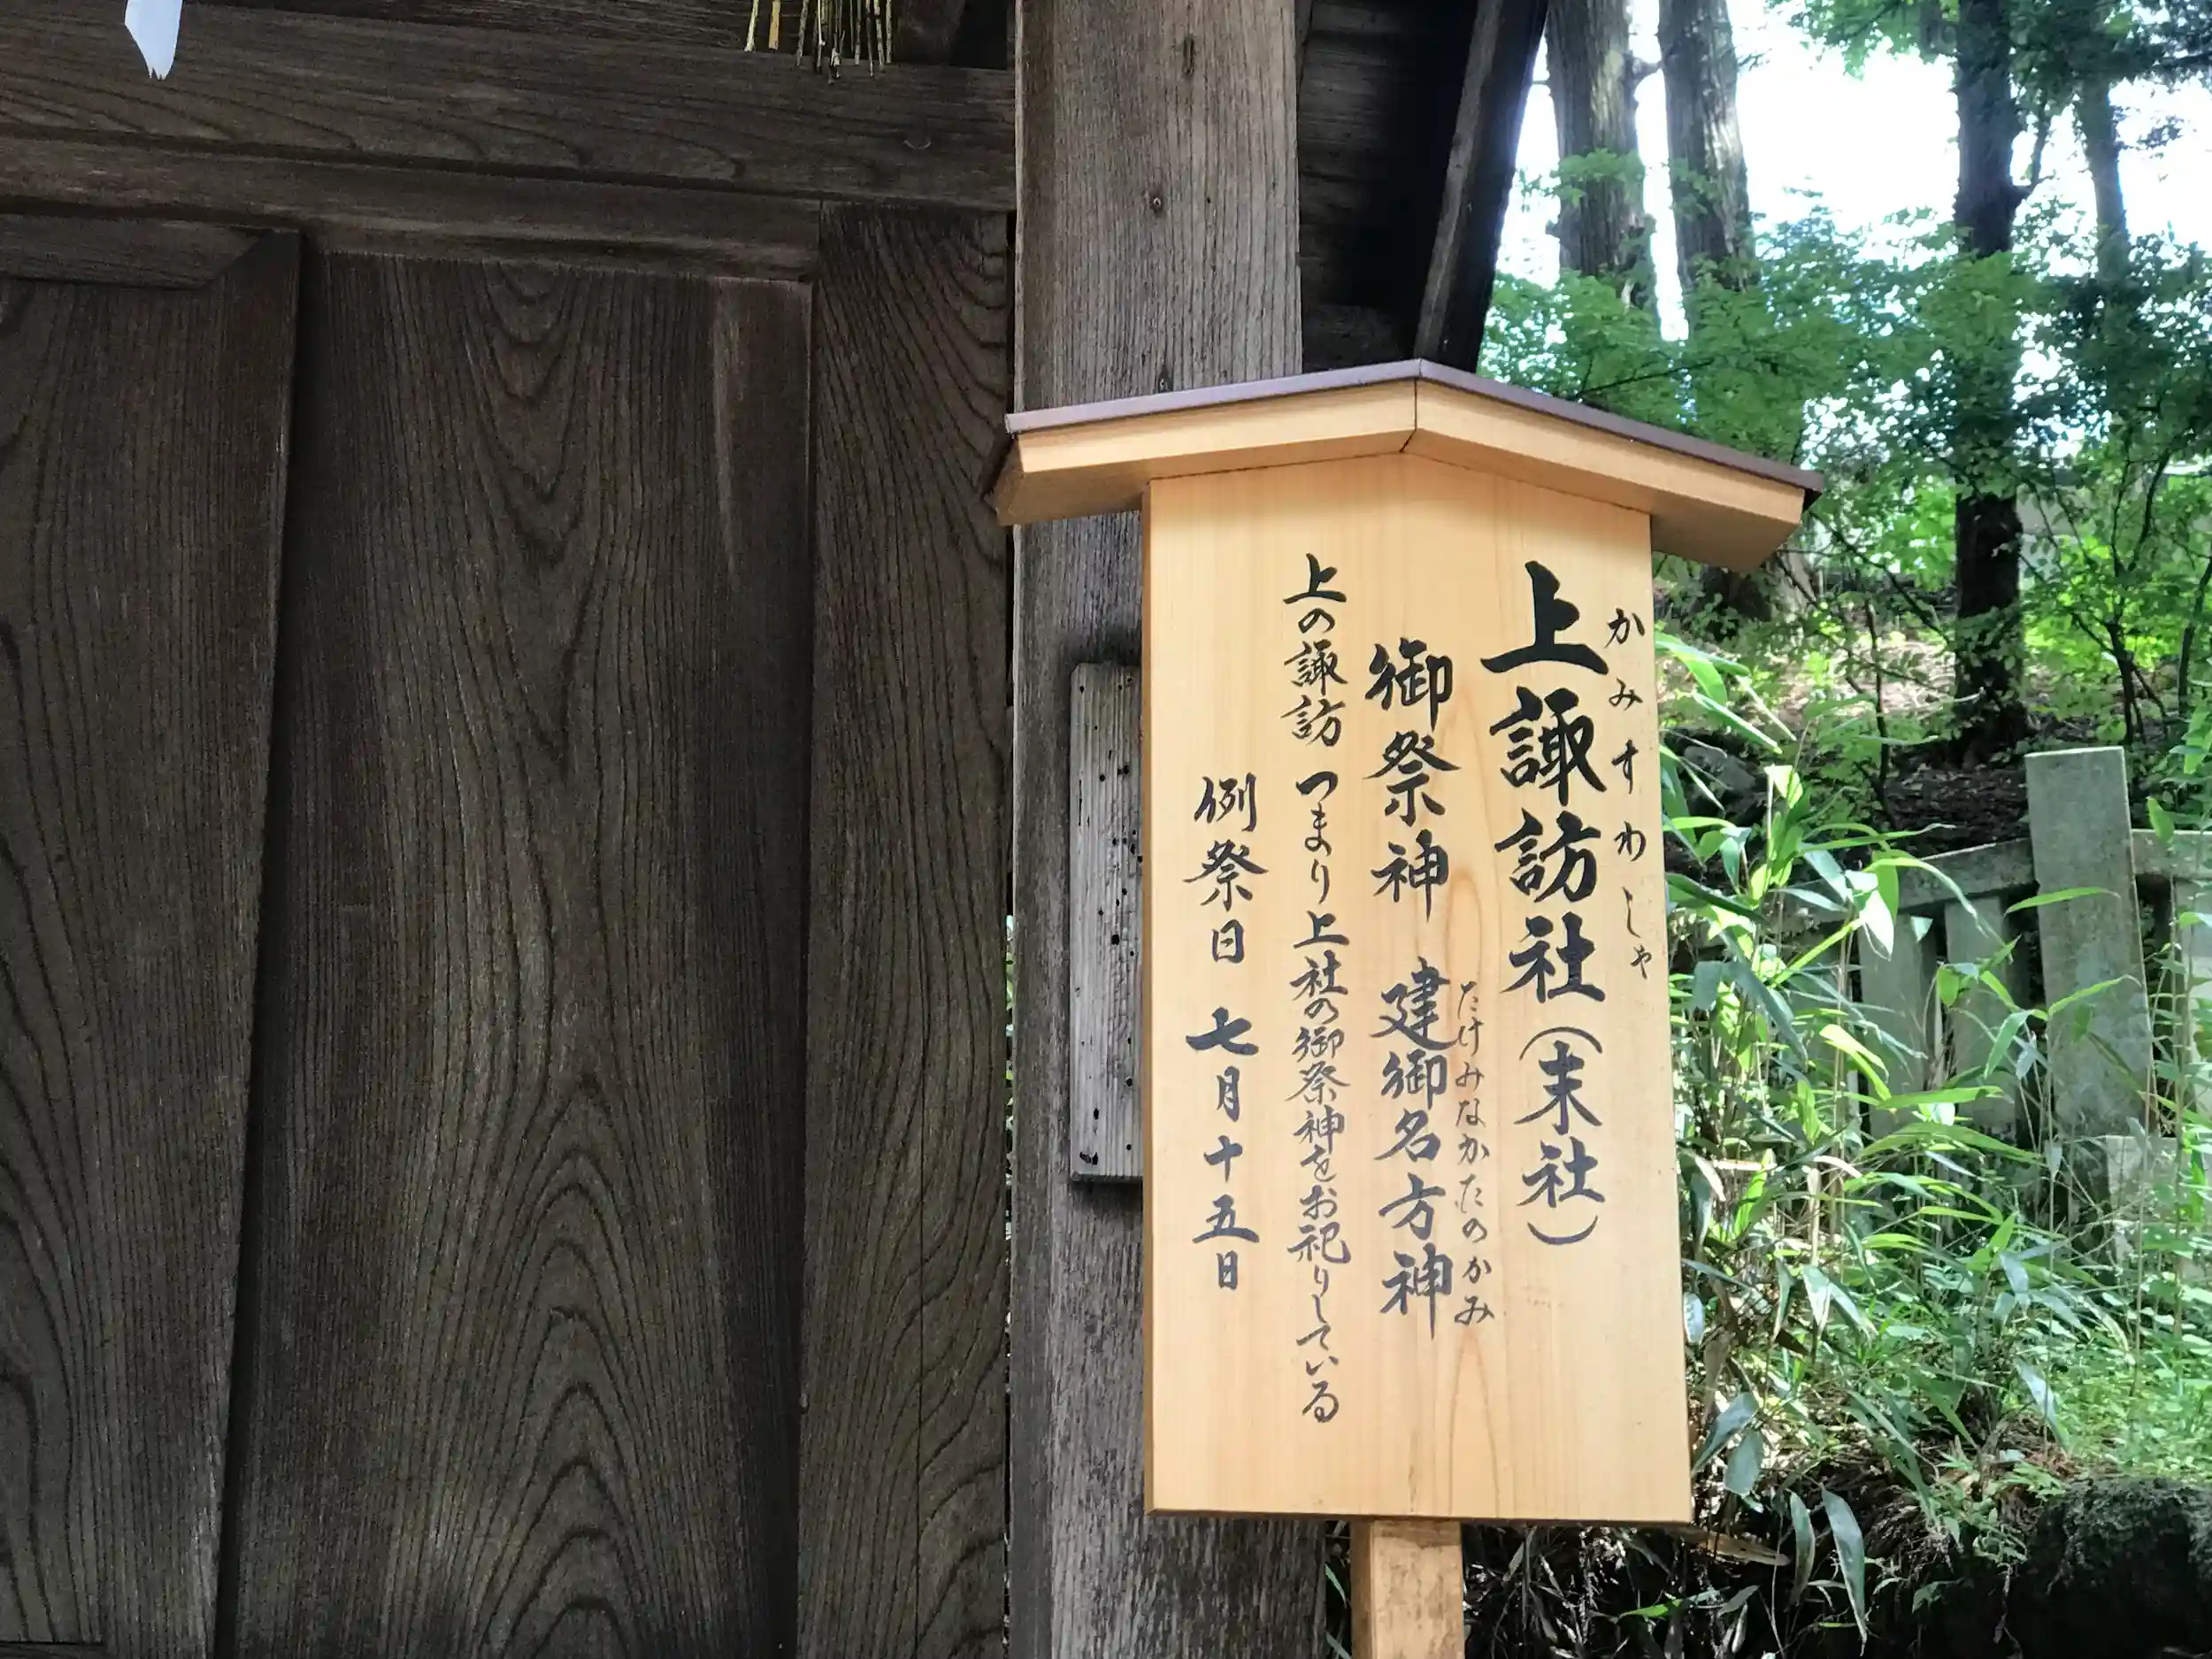 かみすわしゃ
上諏訪社（末社）
たけみなかたのかみ
御祭神　建御名方神
上の諏訪　つまり上社の御祭神をお祀りしている
例祭日　七月十五日